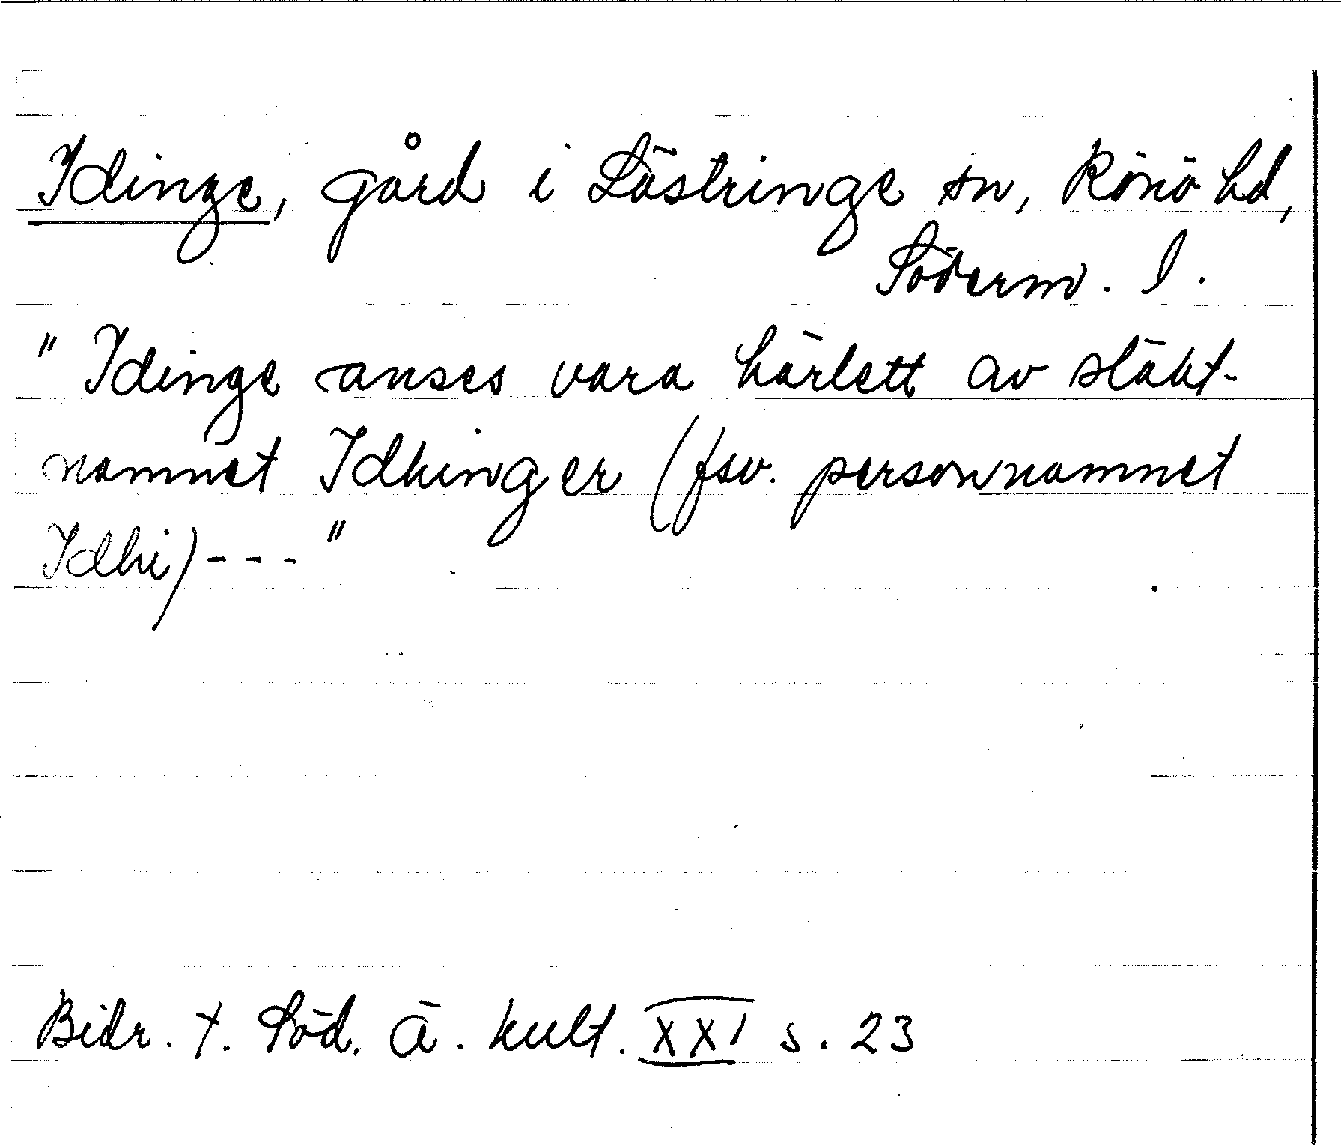 Idinge, gård i Lästringe sn, Rönö hd,
Söderm. l.
" Idinge anses vara härlett av släkt-
namnet Idhinger (fsv. personnamnet
Idhi) - - - "
Bidr. t. Söd. ä. kult. XXI s. 23